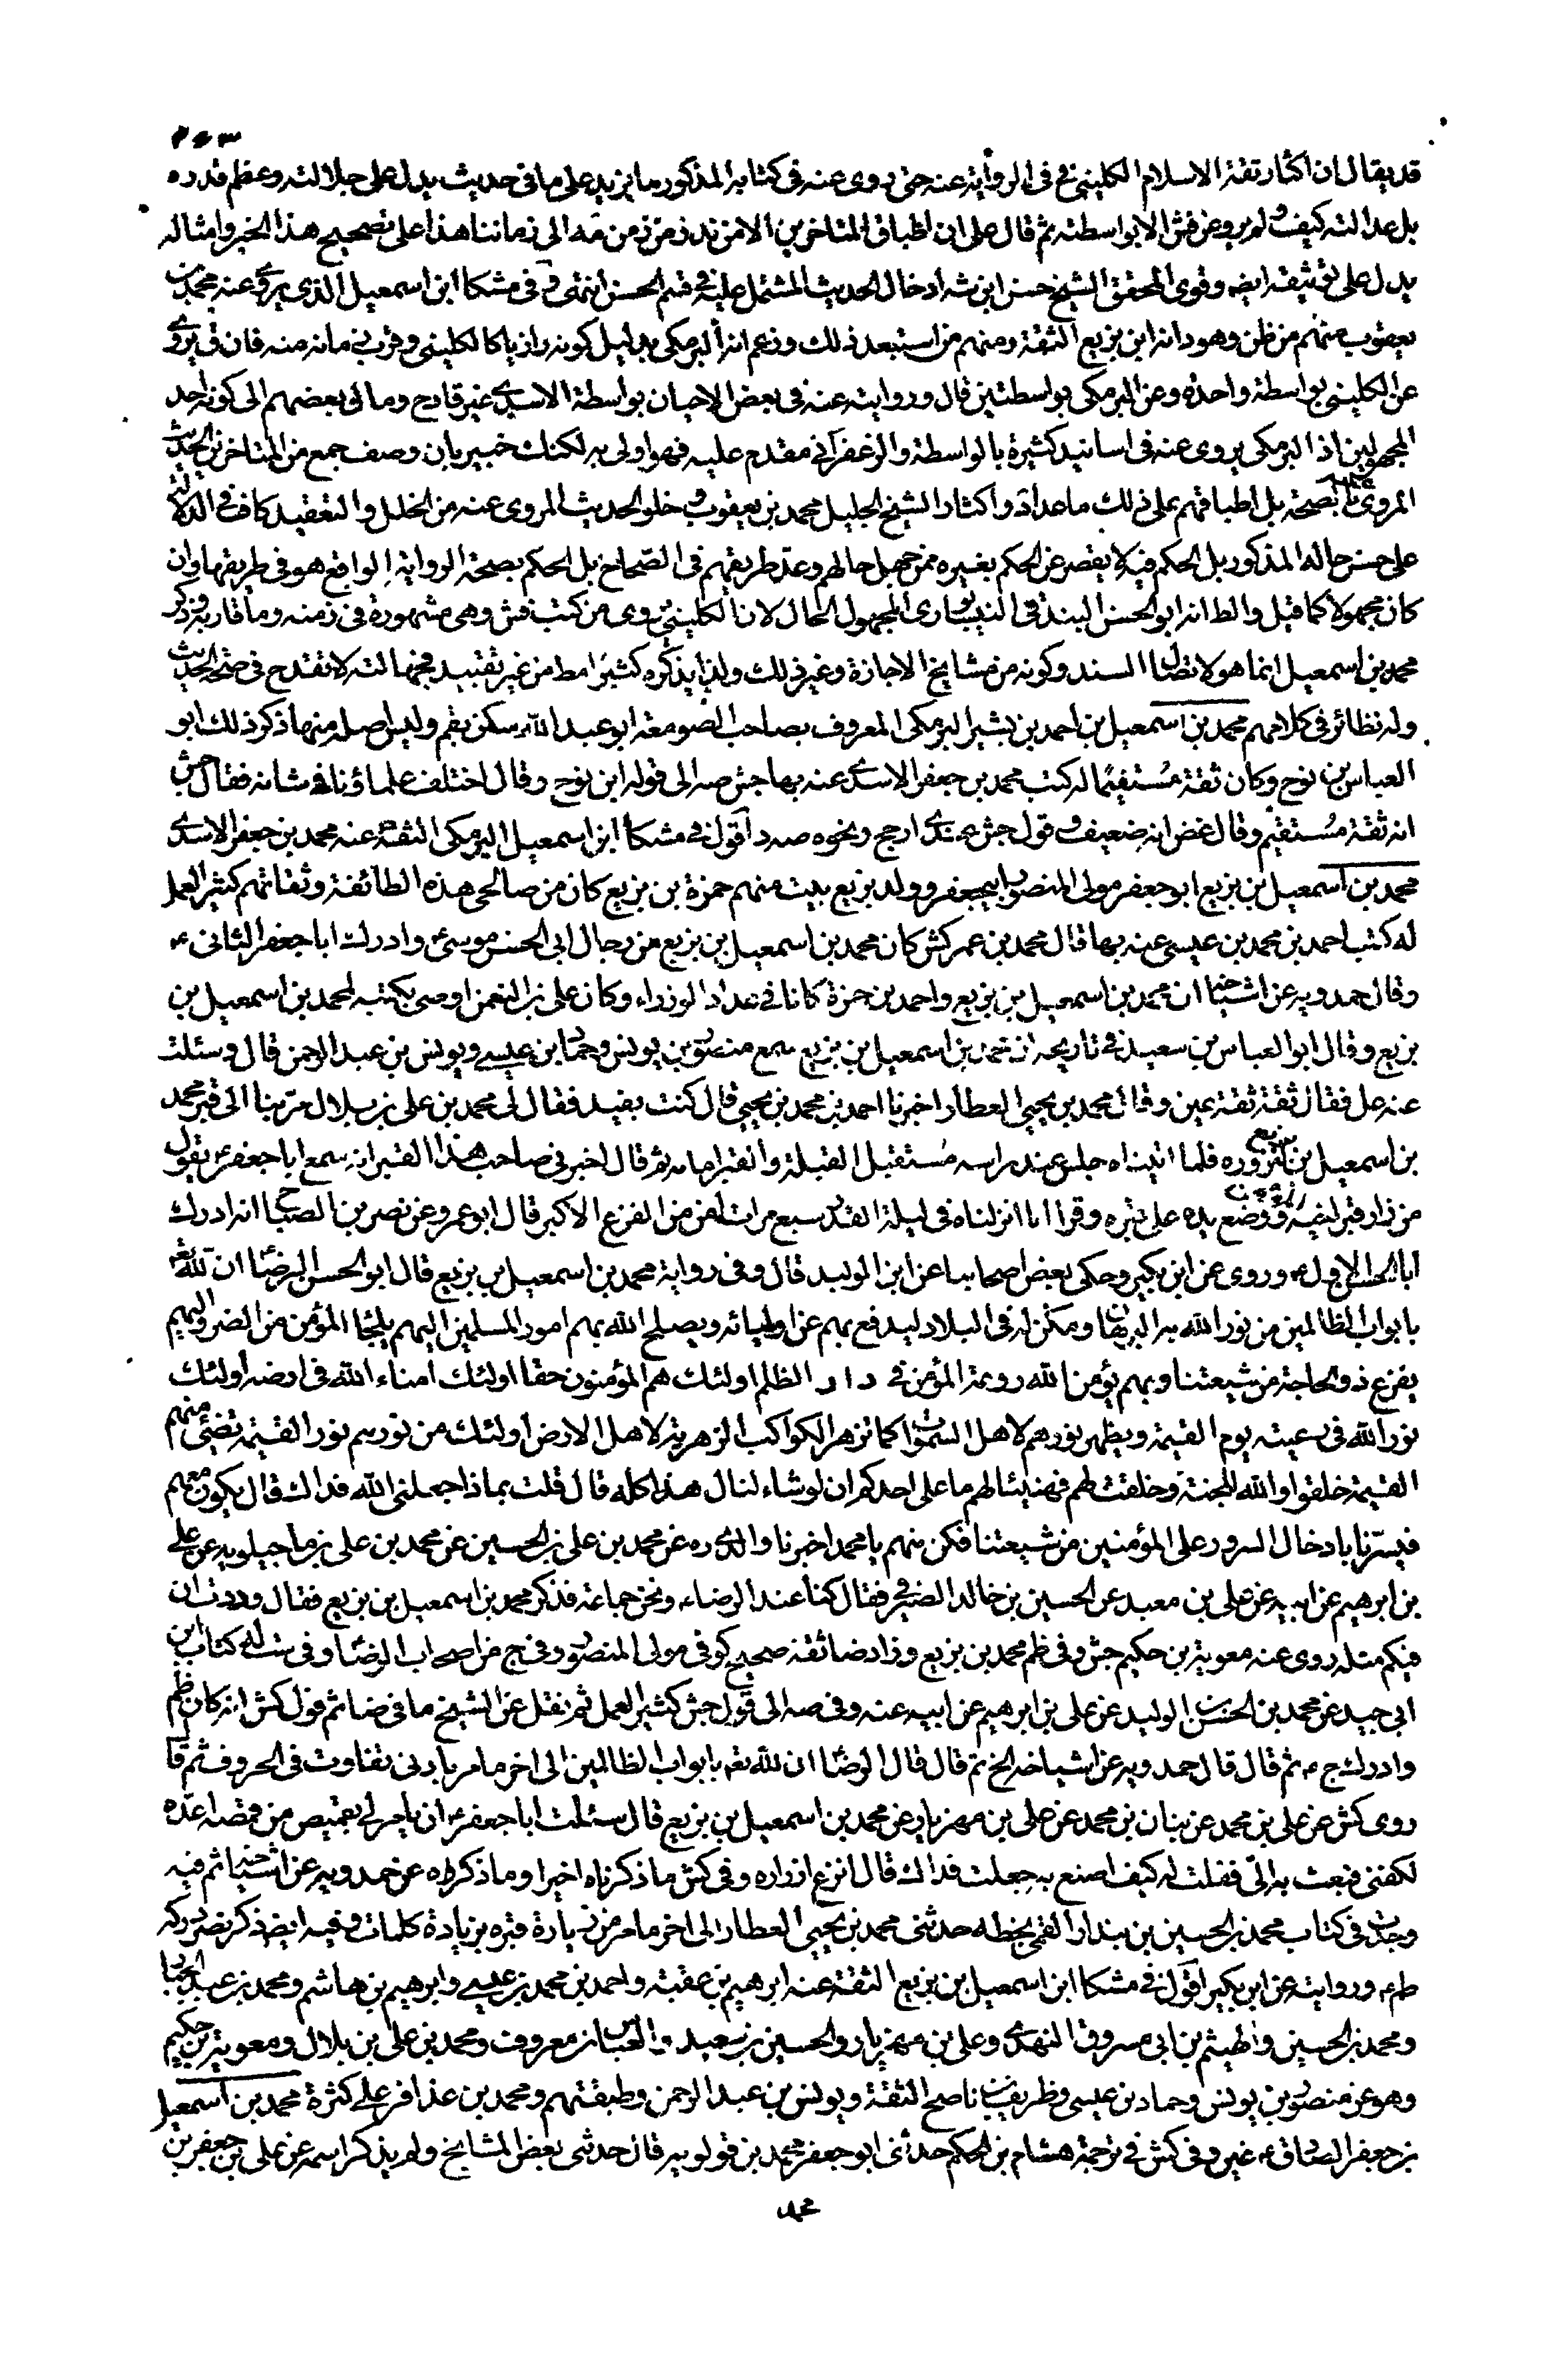 ٢٤٣
قد يقال ان اكثار ثقة الاسلام الكليني في الرواية عنه حتى روى عنه في كتابه المذكور ما يزيد على مأتى حديث يدل على جلالته وعظم قدره
بل عدالته كيف ولم يرو عن فش الا بواسطته ثم قال على ان اطباق المتاخرين الا من ندر من زمن مه الى زماننا هذا على تصحيح هذا الخبر وامثاله
يدل على توثيقه ايضه وقوى المحقق الشيخ حسن ابن شه ادخال الحديث المشتمل عليه في قسم الحسن انتهى وفي مشكا ابن اسمعيل الذي يروى عنه محمد بن
يعقوب منهم من ظن وهو د انه ابن بزيع الثقة ومنهم من استبعد ذلك وزعم انه البرمكي بدليل كونه رازيا كالكليني وقرب زمانه منه فان ق يروى
عن الكليني بواسطة واحدة وعن البرمكي بواسطتين قال وروايته عنه في بعض الاحيان بواسطة الاسدي غير قادح ومال بعضهم الى كونه احد
المجهولين اذ البرمكي يروى عنه في اسانيد كثيرة بالواسطة والزعفراني مقدم عليه فهو اولى به لكنك خبير بان وصف جمع من المتاخرين الحديث
المروى بالصحة بل اطباقهم على ذلك ما عدا د واكثار الشيخ الجليل محمد بن يعقوب وخلو الحديث المروى عنه من الخلل والتعقيد كاف في الدلالة
على حسن حاله المذكور بل الحكم فيه لا يقصر عن الحكم بغيره ممن جهل حالهم وعد طريقهم في الصحاح بل الحكم بصحة الرواية الواقع هو في طريقها وان
كان مجهولا كما قيل والظ انه ابو الحسن البندقي النيسابوري المجهول الحال لان الكليني يروى من كتب فش وهي مشهورة في زمنه وما قاربه وذكر
محمد بن اسمعيل انما هو لاتصال السند وكونه من مشايخ الاجازة وغير ذلك ولذا يذكره كثيرا مط من غير تقييد فجهالته لا تقدح في صحة الحديث
وله نظائر في كلامهم محمد بن اسمعيل بن احمد بن بشير البرمكي المعروف بصاحب الصومعة ابو عبد الله سكن بقم وليس اصله منها ذكر ذلك ابو
العباس بن نوح وكان ثقة مستقيما له كتب محمد بن جعفر الاسدي عنه بها جش صه الى قوله ابن نوح وقال اختلف علماؤنا في شانه فقال جش
انه ثقة مستقيم وقال غض انه ضعيف وقول جش عندي ارجح ونحوه صه د اقول في مشكا ابن اسمعيل البرمكي الثقة عنه محمد بن جعفر الاسدي
محمد بن اسمعيل بن بزيع ابو جعفر مولى المنصور ابي جعفر وولد بزيع بيت منهم حمزة بن بزيع كان من صالحي هذه الطائفة وثقاتهم كثير العمل
له كتب احمد بن محمد بن عيسى عنه بها قال محمد بن عمر كش كان محمد بن اسمعيل بن بزيع من رجال ابي الحسن موسى ع وادرك ابا جعفر الثاني ع
وقال حمدويه عن اشياخنا ان محمد بن اسمعيل بن بزيع واحمد بن حمزة كانا في عداد الوزراء وكان علي بن النعمن اوصى بكتبه لمحمد بن اسمعيل بن
بزيع وقال ابو العباس بن سعيد في تاريخه ان محمد بن اسمعيل بن بزيع سمع منصور بن يونس وحماد بن عيسى ويونس بن عبد الرحمن قال وسئلت
عنه عل فقال ثقة ثقة عين وقال محمد بن يحيى العطار اخبرنا احمد بن محمد بن يحيى قال كنت بفيد فقال لي محمد بن علي بن بلال مر بنا الى قبر محمد
بن اسمعيل بن بزيع لنزوره فلما اتيناه جلس عند راسه مستقبل القبلة والقبر امامه ثم قال اخبرني صاحب هذا القبر انه سمع ابا جعفر ع يقول
من زار قبر اخيه المؤمن ووضع يده على قبره وقرا انا انزلناه في ليلة القدر سبع مرات امن من الفزع الاكبر قال ابو عمرو عن نصر بن الصباح انه ادرك
ابا الحسن الاول ع وروى عن ابن بكير وحكى بعض اصحابنا عن ابن الوليد قال وفي رواية محمد بن اسمعيل بن بزيع قال ابو الحسن الرضا ان لله تعالى
بابواب الظالمين من نور الله به البرهان ومكن له في البلاد ليدفع بهم عن اوليائه ويصلح الله بهم امور المسلمين اليهم يلتجا المؤمن من الضر واليهم
يفزع ذو الحاجة من شيعتنا وبهم يؤمن الله روعة المؤمن في دار الظلم اولئك هم المؤمنون حقا اولئك امناء الله في ارضه اولئك
نور الله في رعيته يوم القيمة ويظهر نورهم لاهل السموات كما تزهر الكواكب الزهرية لاهل الارض اولئك من نورهم نور القيمة تضئ منهم
القيمة خلقوا والله للجنة وخلقت لهم فهنيئا لهم ما على احدكم ان لو شاء لنال هذا كله قال قلت بماذا جعلني الله فداك قال يكون معهم
فيسرنا بادخال السرور على المؤمنين من شيعتنا فكن منهم يا محمد اخبرنا والدي ره عن محمد بن علي بن الحسين عن محمد بن علي بن ماجيلويه عن علي
بن ابرهيم عن ابيه عن علي بن معبد عن الحسين بن خالد الصيرفي فقال كنا عند الرضا ع ونحن جماعة فذكر محمد بن اسمعيل بن بزيع فقال وددت ان
فيكم مثله روى عنه معوية بن حكيم جش وفي ظم محمد بن بزيع وزاد ضا ثقة صحيح كوفي مولى المنصور وفي ج من اصحاب الرضا وفي ست له كتاب ابن
ابي جيد عن محمد بن الحسن بن الوليد عن علي بن ابرهيم عن ابيه عنه وفي صه الى قول جش كثير العمل ثم نقل عن الشيخ ما في ضا ثم قول كش انه كان ظم
وادرك ج ع ثم قال قال حمدويه عن اشياخه الخ ثم قال قال الرضا ان لله تعه بابواب الظالمين الى اخر ما مر بادنى تفاوت في الحروف ثم قا
روى كش عن علي بن محمد عن بنان بن محمد عن علي بن مهزيار عن محمد بن اسمعيل بن بزيع قال سئلت ابا جعفر ع ان يامر لي بقميص من قمصه اعده
لكفني فبعث به الي فقلت له كيف اصنع به جعلت فداك قال انزع ازراره وفي كش ما ذكرناه اخيرا وما ذكراه عن حمدويه عن اشياخنا ثم فيه
وجدت في كتاب محمد بن الحسين بن بندار القمي بخطه حدثني محمد بن يحيى العطار الى اخر ما مر من زيارة قبره بزيادة كلمات وفيه ايضه ذكر نصر دركه
ظم ع وروايته عن ابن بكير اقول في مشكا ابن اسمعيل بن بزيع الثقة عنه ابرهيم بن عقبة واحمد بن محمد بن عيسى وابرهيم بن هاشم ومحمد بن عبد الجبار
ومحمد بن الحسين والهيثم بن ابي مسروق النهدي وعلي بن مهزيار والحسين بن سعيد والعباس بن معروف ومحمد بن علي بن بلال ومعوية بن حكيم
وهو عن منصور بن يونس وحماد بن عيسى وظريف بن ناصح الثقة ويونس بن عبد الرحمن وطبقتهم ومحمد بن عذافر على كثرة محمد بن اسمعيل
بن جعفر الصادق ع غير وفي كش في ترجمة هشام بن الحكم حدثني ابو جعفر محمد بن قولويه قال حدثني بعض المشايخ ولم يذكر اسمه عن علي بن جعفر بن
محمد